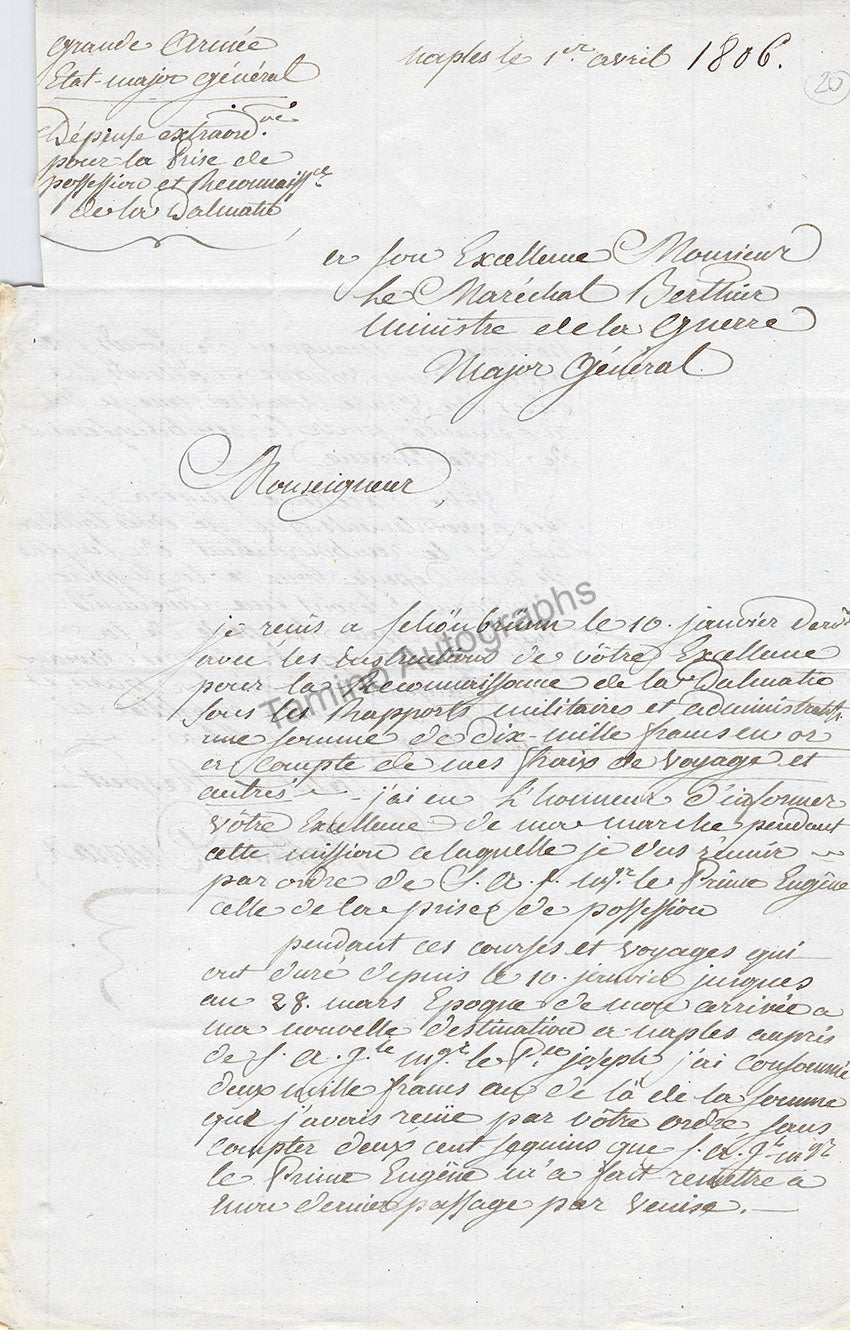 Grande Armée
Etat-major général
Dépense extraord.re
pour la Prise de
possession et Reconnaiss.ce
de la Dalmatie
Naples le 1er avril 1806.
20
a son Excellence Monsieur
Le Maréchal Berthier
Ministre de la Guerre
Major Général
Monseigneur,
je reçus a Schönbrunn le 10. janvier der.er
avec les instructions de vôtre Excellence
pour la Reconnaissance de la Dalmatie
sous les Rapports militaires et administratifs
une somme de dix-mille francs en or
a compte de mes fraix de voyage et
autres – j'ai eu L'honneur d'informer
vôtre Excellence de ma marche pendant
cette mission a laquelle je dus réunir –
par ordre de S. A. I. mgr. le Prince Eugêne
celle de la prise de possession
pendant ces courses et voyages qui
ont duré depuis le 10. janvier jusques
au 28. mars Epoque de mon arrivée a
ma nouvelle destination a naples auprès
de S. A. I.le mgr. le P.ce joseph, j'ai consommé
deux mille francs au de là de la somme
que j'avais reçüe par vôtre ordre sans
compter deux cent sequins que S. A. I.le mgr
le Prince Eugêne m'a fait remettre a
mon dernier passage par Venise. –
Tamino Autographs